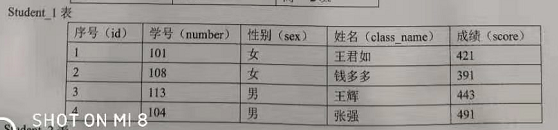 Student_1 表
序号（id） 学号（number） 性别（sex） 姓名（class_name） 成绩（score）
1 101 女 王君如 421
2 108 女 钱多多 391
3 113 男 王辉 443
4 104 男 张强 491
SHOT ON MI 8